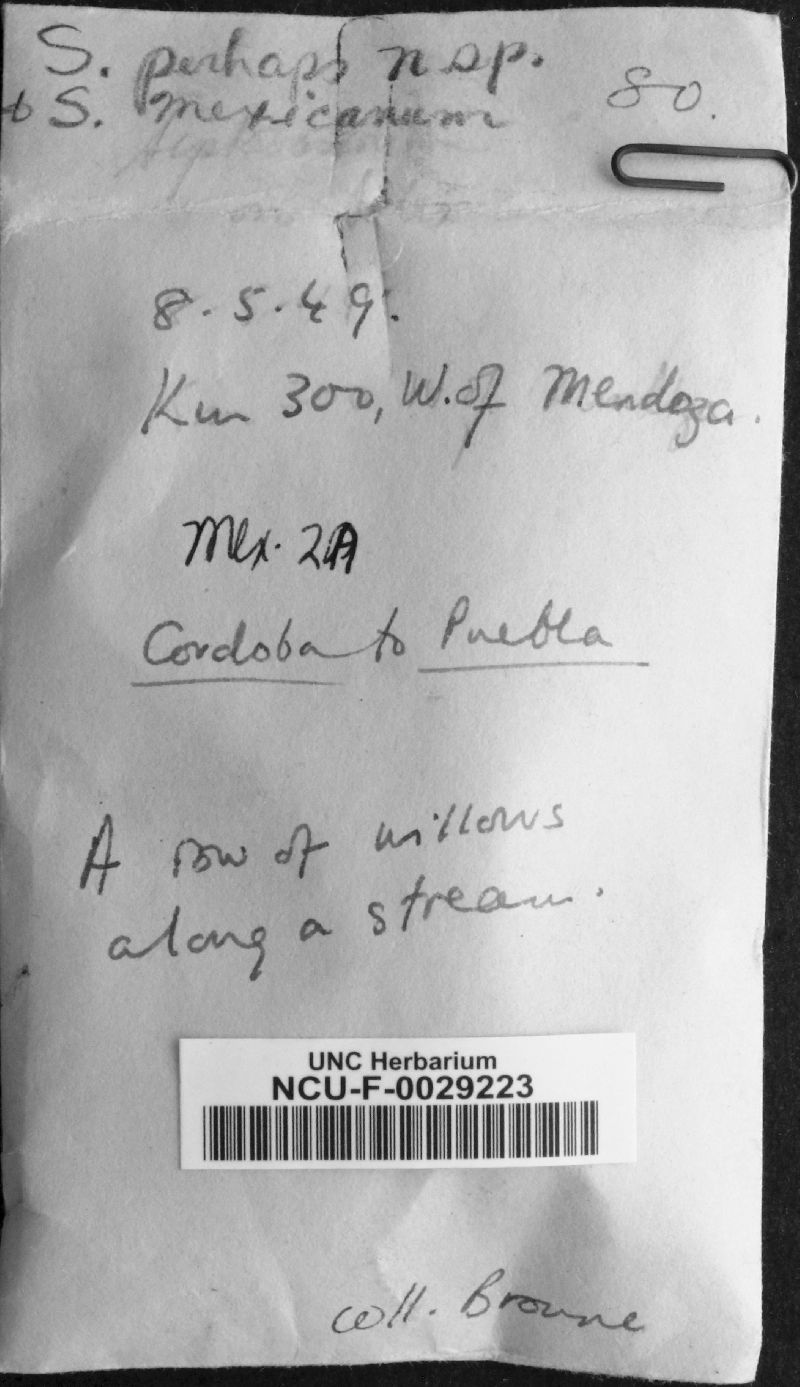 S. perhaps n sp.
S. mexicanum
80.
8.5.49.
Km 300, W. of Mendoza.
Mex. 2A
Cordoba to Puebla
A row of willows
along a stream.
UNC Herbarium
NCU-F-0029223
coll. Browne